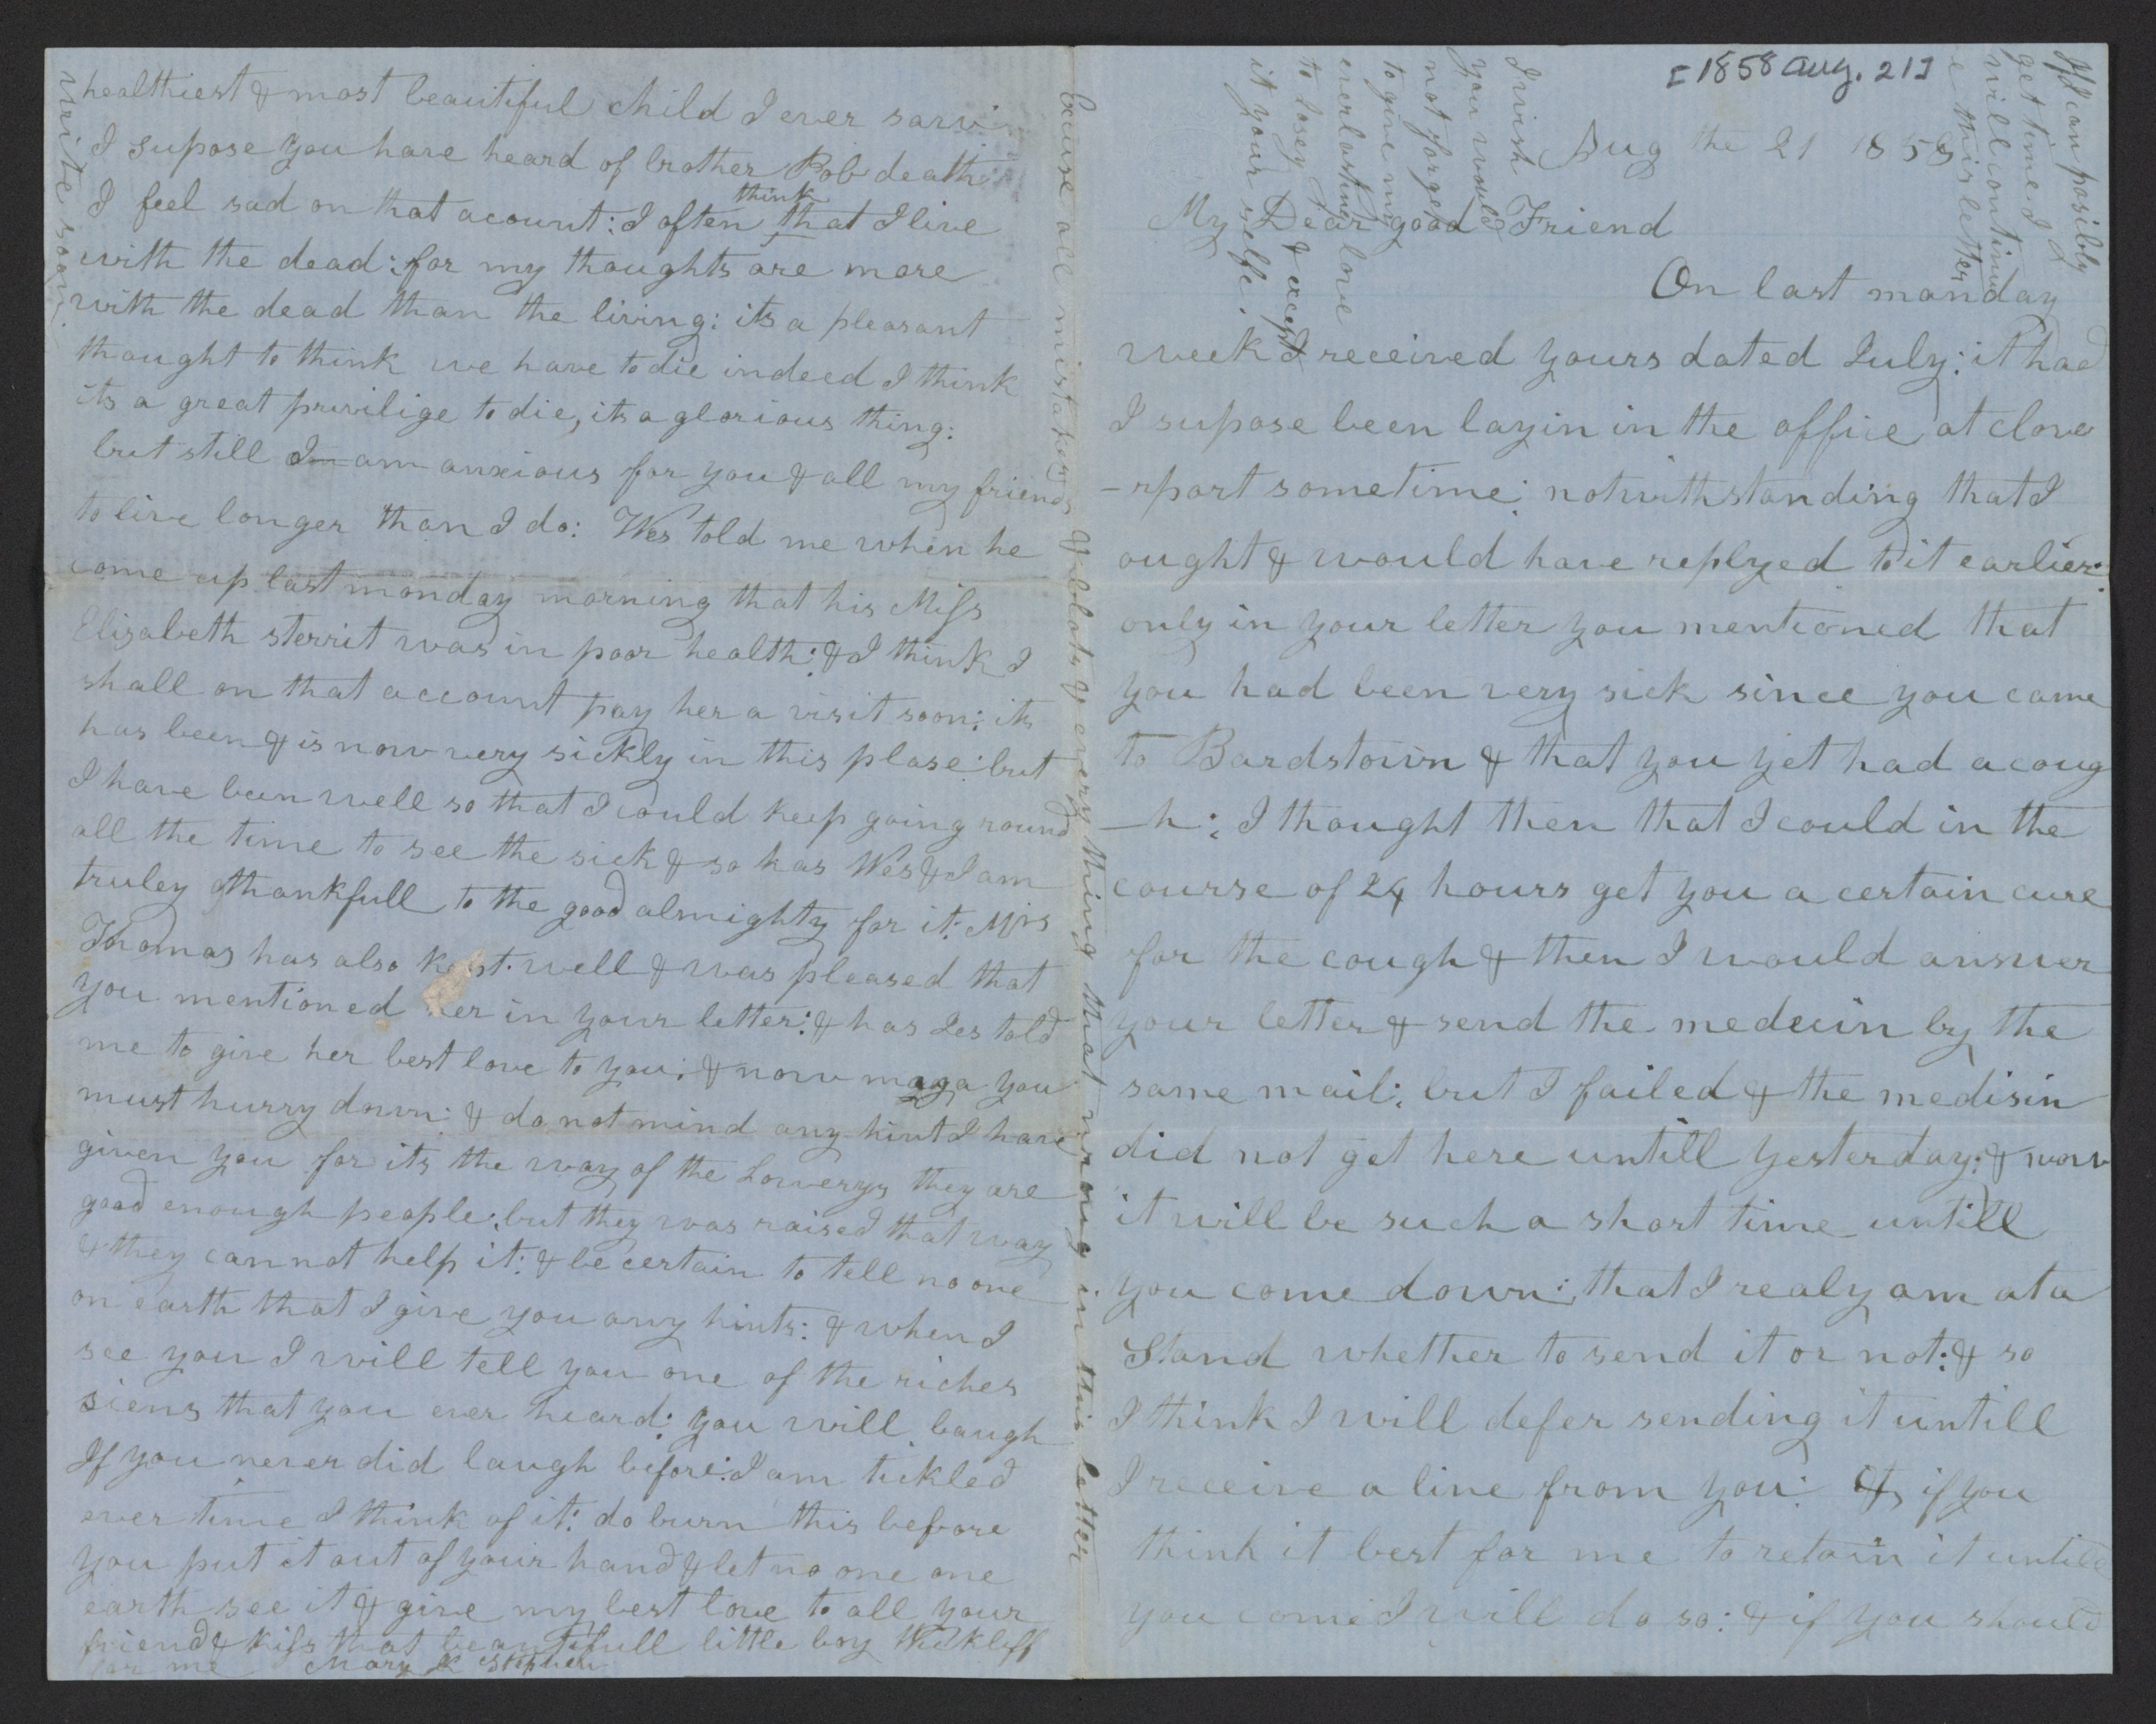 [1858 Aug. 21]
Aug the 21 1858
My Dear good Friend
On last monday
week I received yours dated July: it had
I supose been layin in the office at clove
-rport sometime: notwithstanding that I
ought & would have replyed to it earlier:
only in your letter you mentioned that
you had been very sick since you came
to Bardstown & that you yet had a coug
-h: I thought then that I could in the
course of 24 hours get you a certain cure
for the cough & then I would answer
your letter & send the medecin by the
same mail: but I failed & the medisin
did not get here untill yesterday: & now
it will be such a short time untill
you come down: that I realy am at a
Stand whether to send it or not: & so
I think I will defer sending it untill
I receive a line from you: & if you
think it best for me to retain it untill
you come I will do so: & if you should
If I can posibly
get time I
will continu
e this letter
I wish
you would
not forget
to give my
everlasting love
to Josey & except
it your selfe.
healthiest & most beautiful child I ever saw:
I supose you have heard of brother Bob death
I feel sad on that acount: I often think that I live
with the dead: for my thoughts are more
with the dead than the living: its a pleasant
thought to think we have to die indeed I think
its a great privilige to die, its a glorious thing:
but still I am anxious for you & all my friends
to live longer than I do: Wes told me when he
come up last monday morning that his Miss
Elisabeth sterrit was in poor health: & I think I
shall on that account pay her a visit soon: its
has been & is now very sickly in this plase: but
I have been well so that I could keep going round
all the time to see the sick & so has Wes & I am
truley thankfull to the good almighty for it: Mrs
Thomas has also kept well & was pleased that
you mentioned her in your letter: & has Jes told
me to give her best love to you: & now maga you
must hurry down: & do not mind any hint I have
given you for its the way of the Lowerys they are
good enough people: but they was raised that way
& they can not help it: & be certain to tell no one
on earth that I give you any hints: & when I
see you I will tell you one of the riches
siens that you ever heard: you will laugh
If you never did laugh before: I am tickled
ever time I think of it: do burn this before
you put it out of your hand & let no one one
earth see it & give my best love to all your
friend & kiss that beautifull little boy Wickliff
for me Mary K Stephen
write soon.
Excuse all mistakes & blots & every thing that wrong in this letter